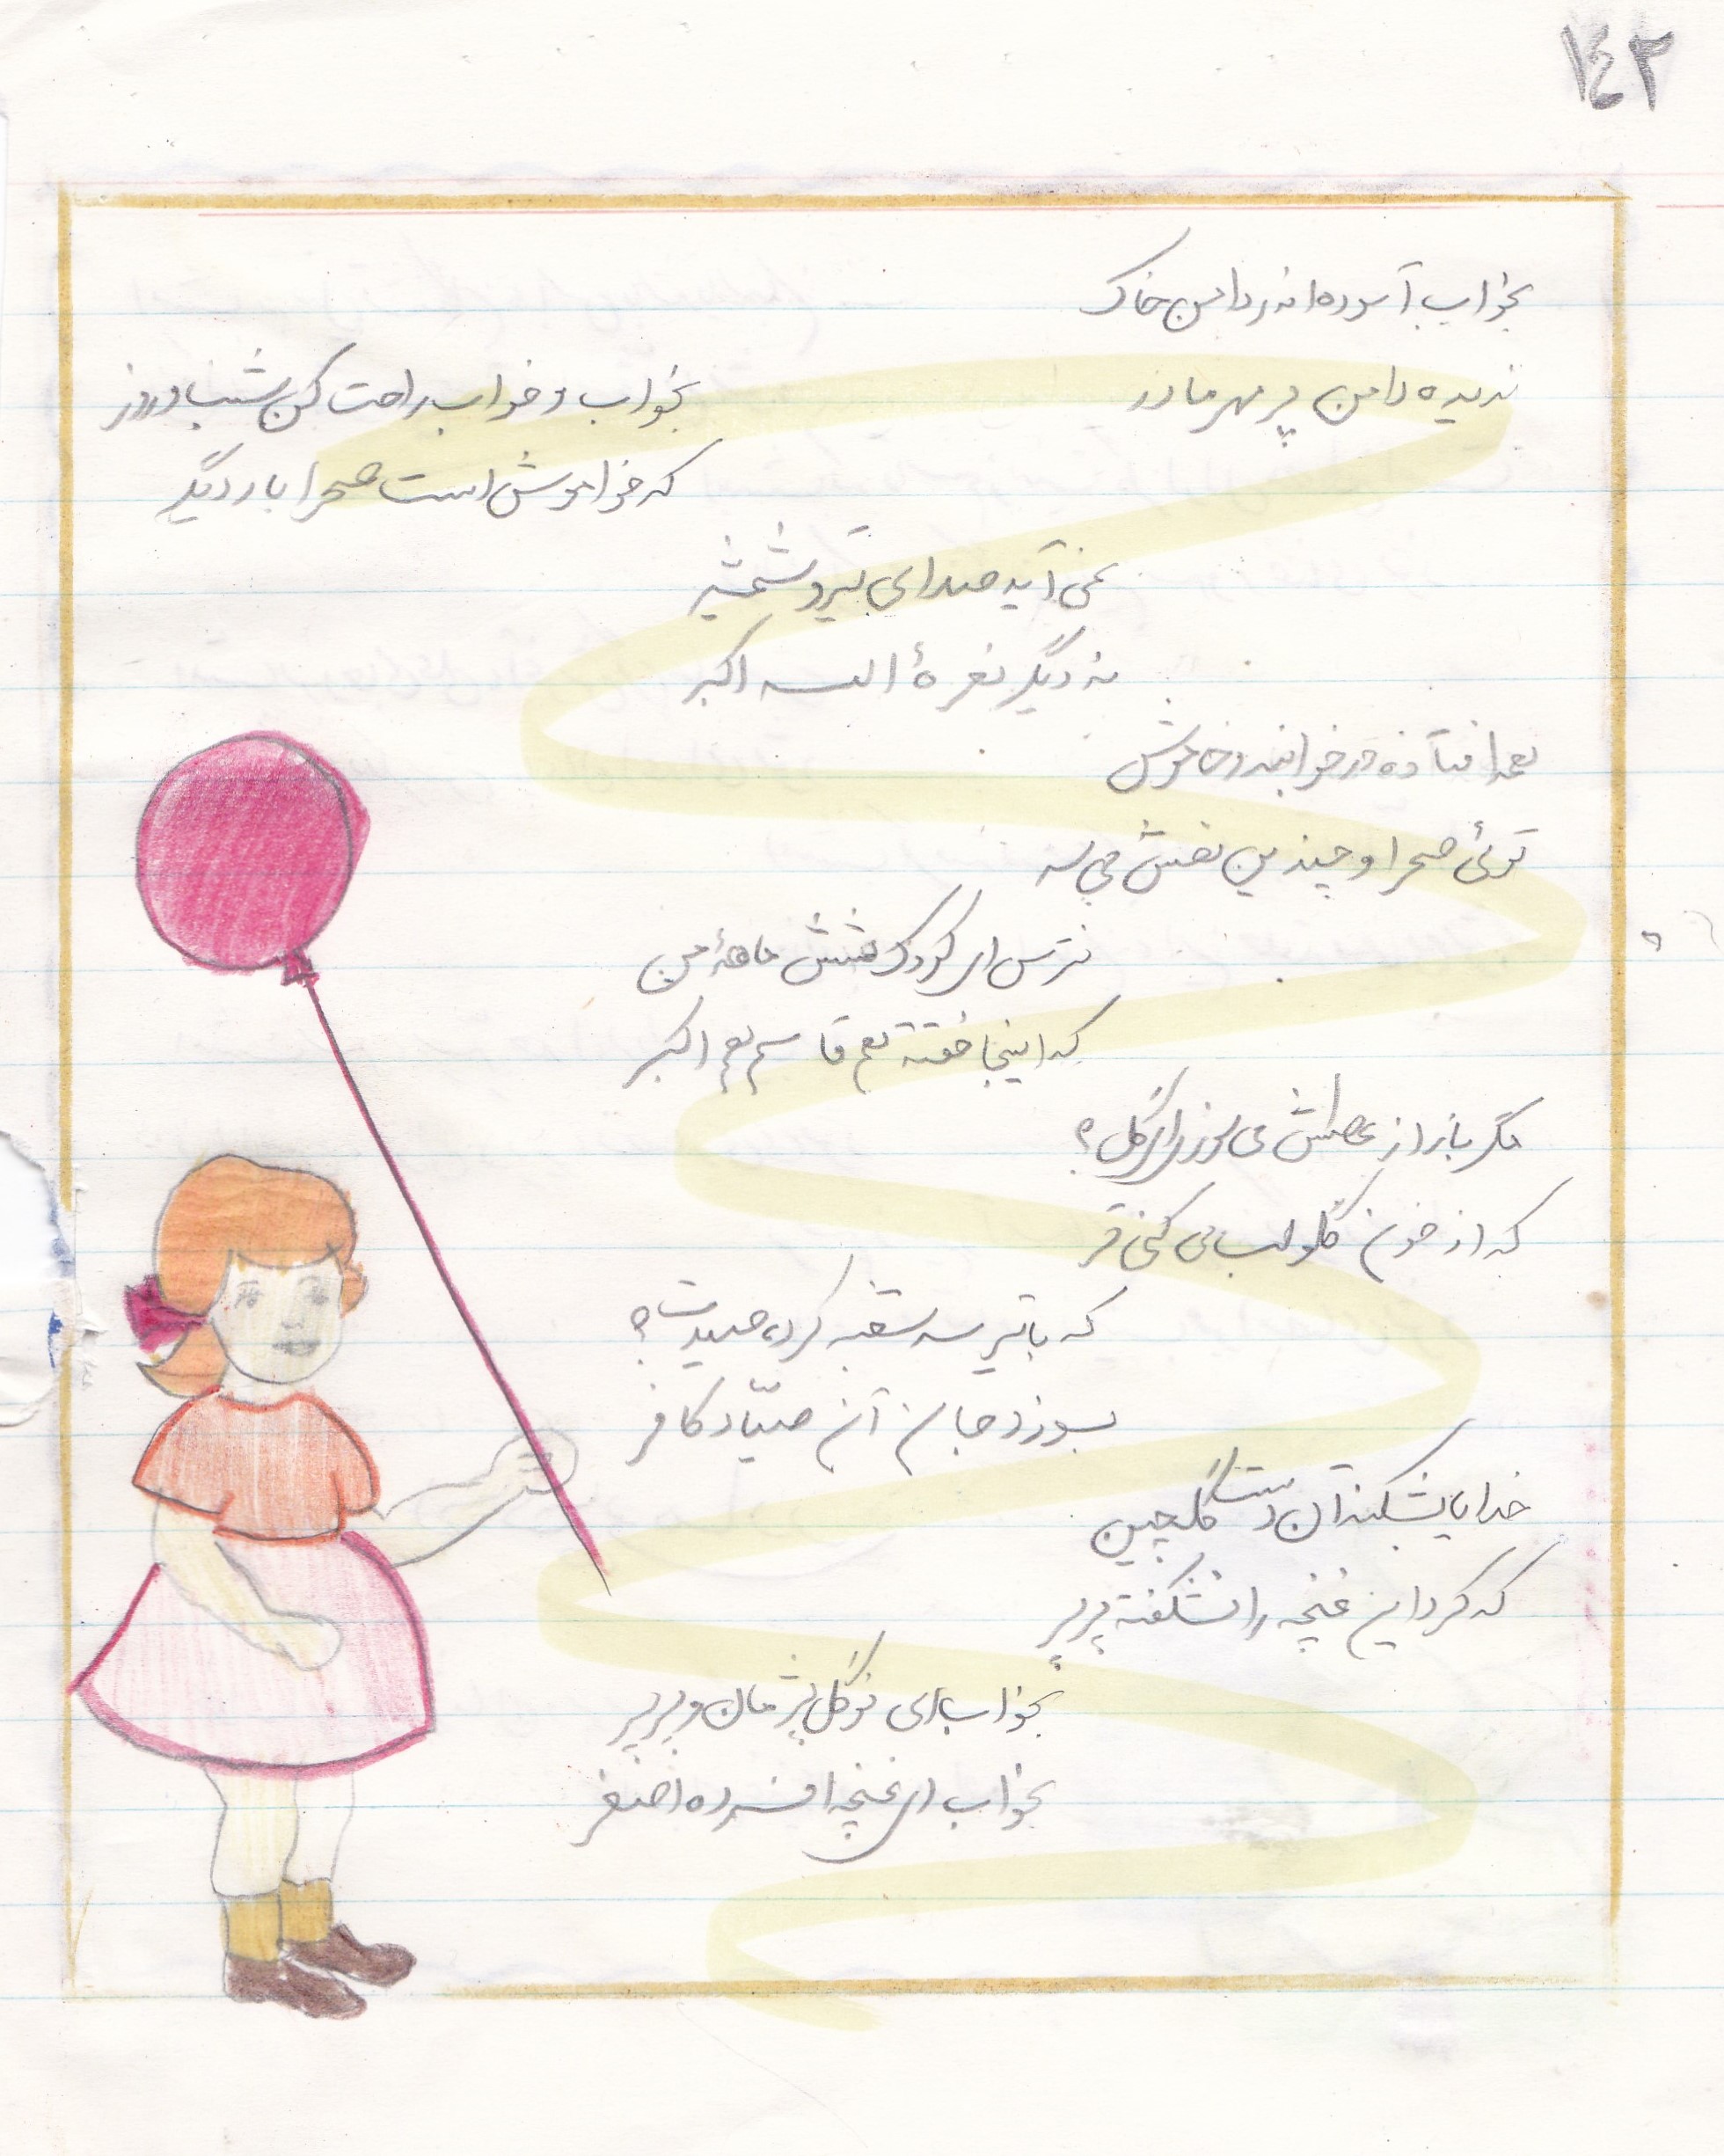 ۱٤۳
بخواب آسوده اندر دامن خاک
ندیده دامن پر مهر مادر
بخواب و خواب راحت کن شب و روز
که خواموش است صحرا بار دیگر
نمی آید صدای تیر و شمشیر
نه دیگر نعرهٔ الله اکبر
همه افتاده در خوابند و خاموش
توئی صحرا و چندین نعش بی سر
نترس ای کودک شش ماههٔ من
که اینجا خفته هم قاسم هم اکبر
مگر باز از عطش می سوزی ای گل؟
که از خون گلو لب می کنی تر
که با تیر سه شعبه کرده صیدت؟
بسوزد جان آن صیّاد کافر
خدایا بشکند آن دست گلچین
که کرد این غنچه را نشکفته پرپر
بخواب ای نوگل پژمان و پرپر
بخواب ای غنچه افسرده اصغر